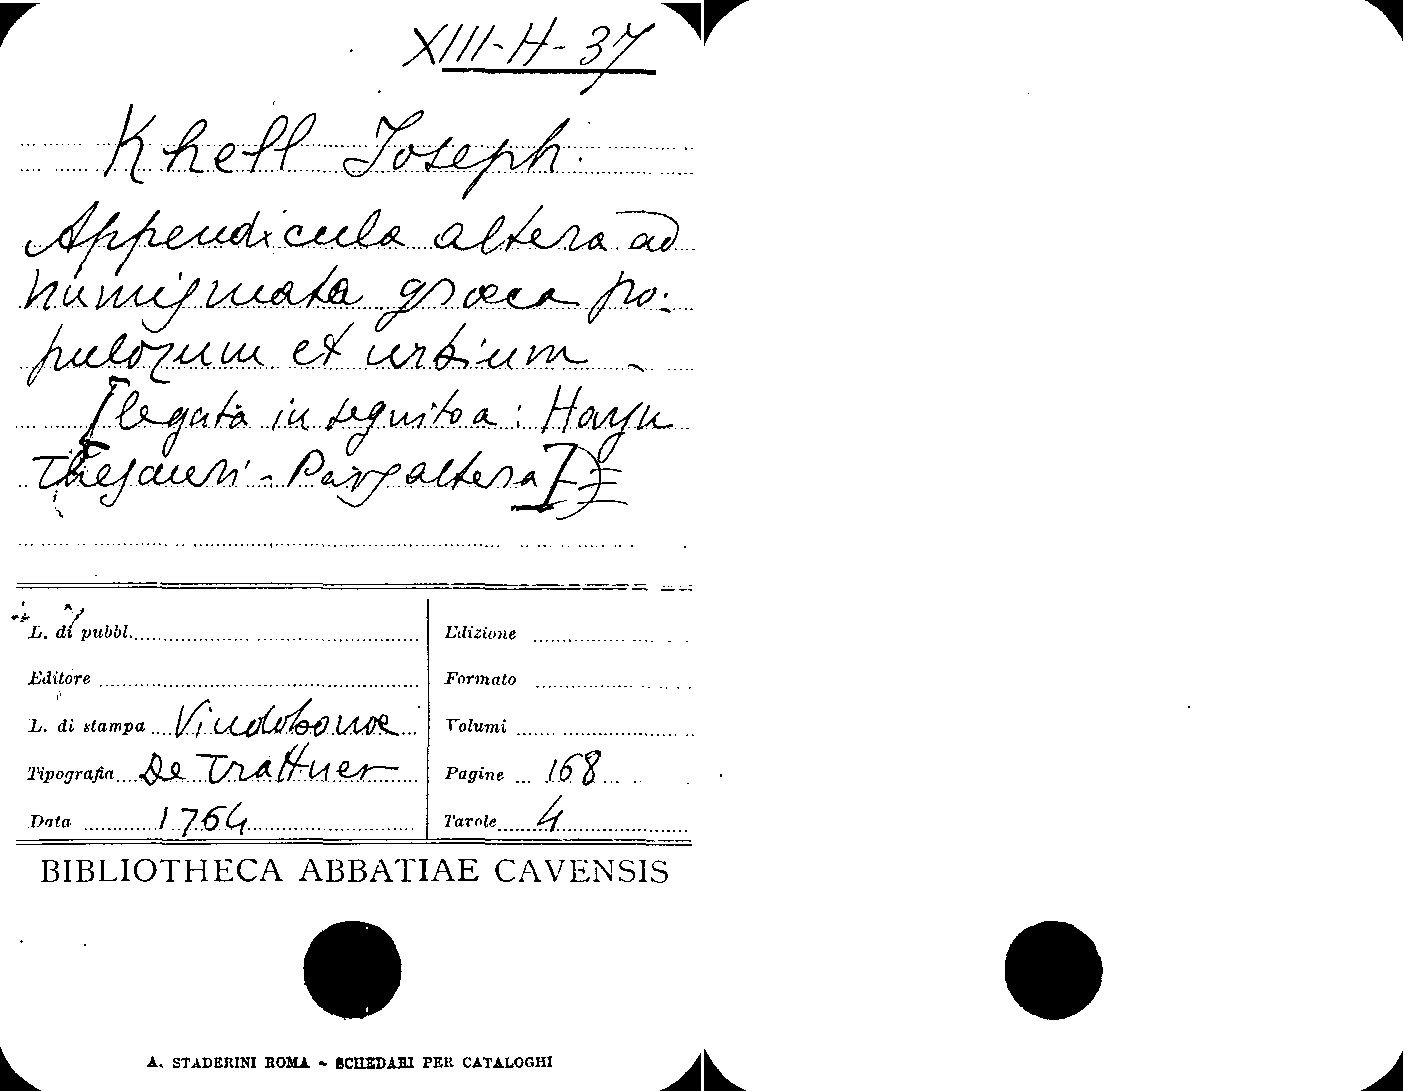 XIII-H-37
Khell Joseph.
Appendicula altera ad
numismata græca po-
pulorum et urbium -
[legata in seguito a: Haym
Thesauri - Pars altera]
L. di pubbl.
Edizione
Editore
Formato
L. di stampa Vindobonæ
Volumi
Tipografia De Trattner
Pagine 168
Data 1764
Tavole 4
BIBLIOTHECA ABBATIAE CAVENSIS
A. STADERINI ROMA - SCHEDARI PER CATALOGHI